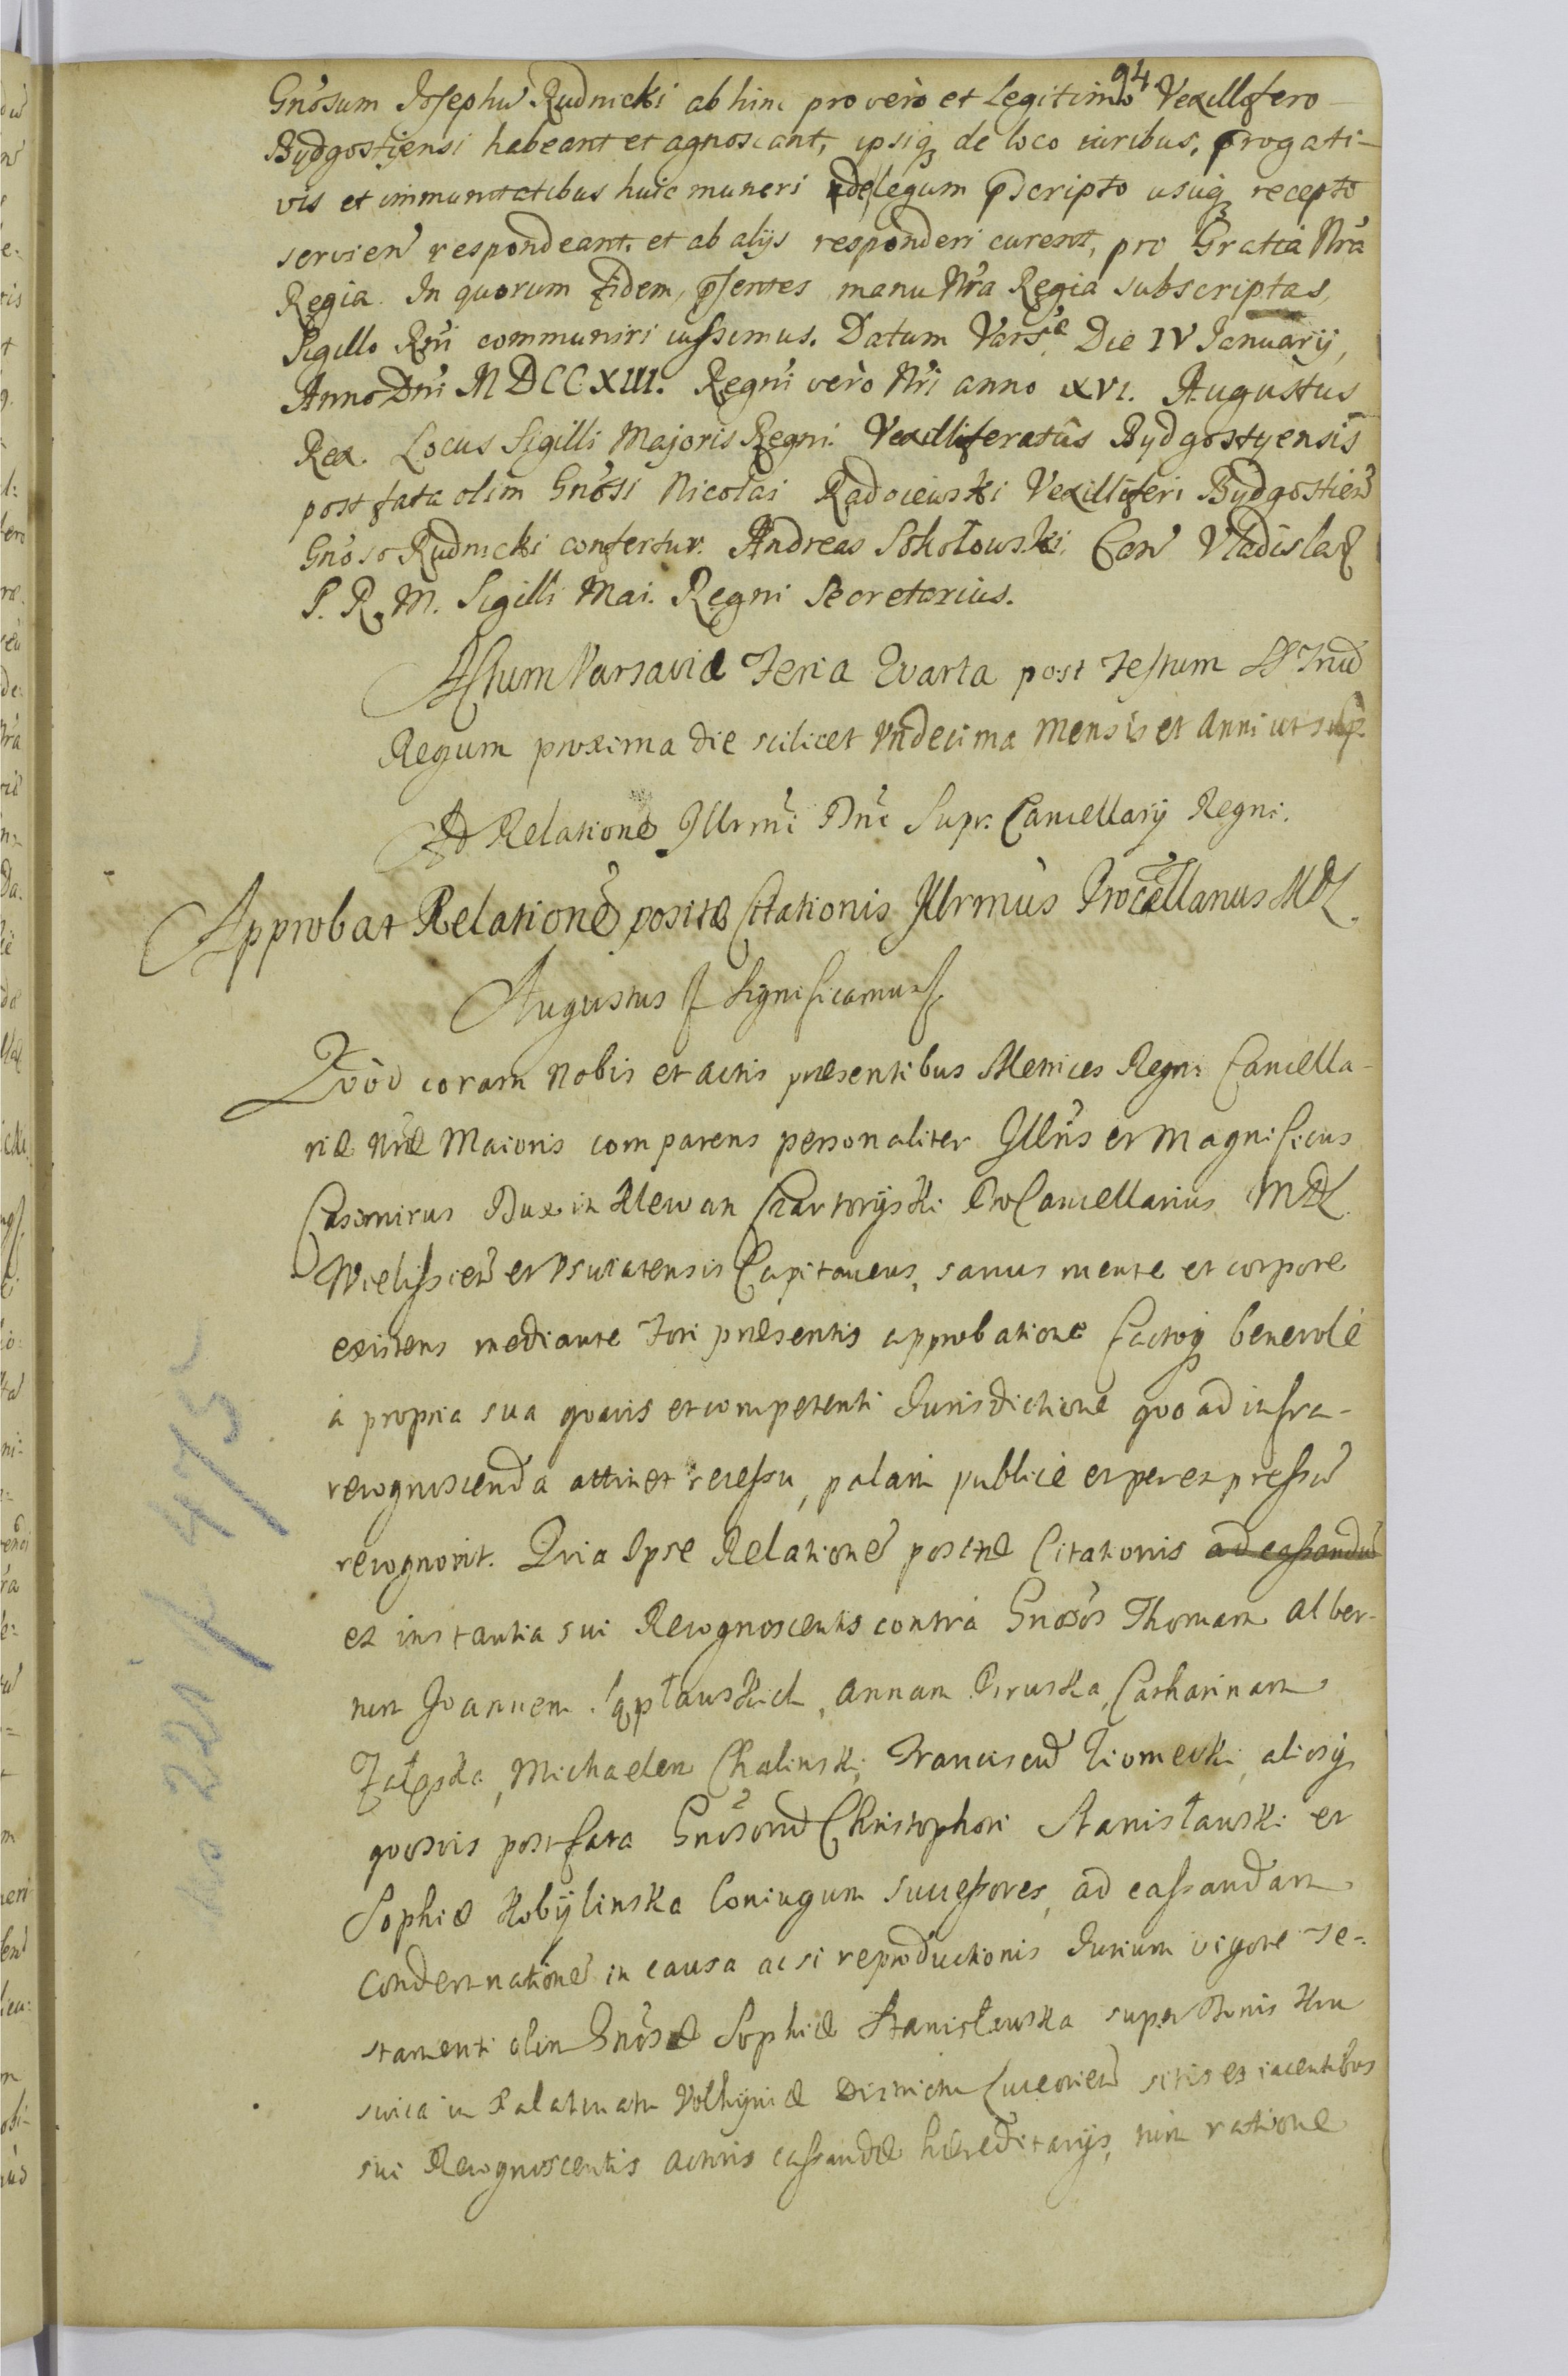 94
Gnosum Josephũ Rudnicki ab hinc pro vero et legitimo Vexillifero
Bydgostiensi habeant et agnoscant, ipsiq de loco iuribus, progati-
vis et immunitatibus huic muneri de legum pscripto usuq recepto
servien respondeant, et ab alijs responderi curent, pro Gratia Nra
Regia. In quorum fidem, psentes manu Nra Regia subscriptas,
Sigillo Rni communiri iussimus. Datum Vars. Die IV Januarij,
Anno Dni MDCCXIII. Regni vero Nri anno XVI. Augustus
Rex. Locus Sigilli Majoris Regni. Vexilliferatus Bydgostyensis
post fata olim Gnosi Nicolai Radoiewski Vexilliferi Bydgostien
Gnoso Rudnicki confertur. Andreas Sokołowski, Can Vladislav
S. R. M. Sigilli Mai. Regni Secretarius.
Actum Varsaviæ Feria Quarta post Festum SS Triũ
Regum proxima die scilicet Undecima Mensis et Anni ut sup.
Ad Relationẽ Illrmi Dni Supr. Cancellarij Regni.
Approbat Relationẽ positæ Citationis Illrmus Procellanus MDL.
Augustus Significamus
Quòd coram Nobis et actis præsentibus Metrices Regni Cancella-
riæ Nræ Maioris comparens personaliter Illris et Magnificus
Casimirus Dux in Klewan Czartoryski ProCancellarius MDL.
Wielissien et Usuiatensis Capitaneus, sanus mente et corpore
existens mediante fori præsentis approbatione factoq benevolè
à propria sua quavis et competenti Jurisdictione quo ad infra-
recognoscenda attinet recessu, palam publicè et per expressũ
recognovit. Quia Ipse Relationẽ positæ Citationis ad cassandũ
ex instantia sui Recognoscentis contra Gnosos Thomam Alber-
tum Joannem, Annam Catharinam
Michaelem Chalinski, Franciscũ aliosq
quosvis post fata Gnosorũ Christophori Stanisławski et
Sophiæ Kobylinska Coniugum Successores, ad cassandam
Condemnationẽ in causa ac si reproductionis Jurium vigore Te-
stamenti olim Gnosæ Sophiæ Stanisławska super Bonis
in Palatinatu Volhyniæ Districtu Luceorien sitis et iacentibus
sui Recognoscentis Actoris cassandæ hæreditarijs, ratione
No 221 / 475